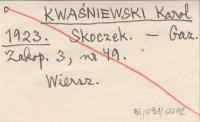 KWAŚNIEWSKI Karol
1923. Skoczek. — Gaz.
Zakop. 3, nr 49.
Wiersz.